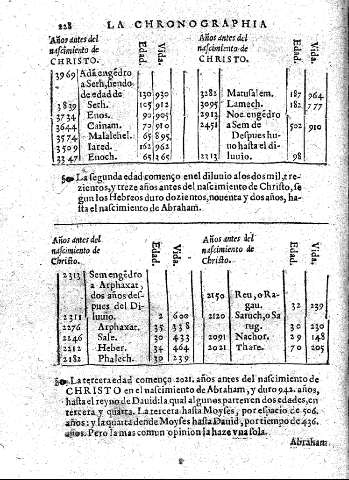 228 LA CHRONOGRAPHIA
Años antes del
nascimiento de
CHRISTO. Edad. Vida.
3969 Adā engēdro
a Seth, siendo
de edad de 130 930
3839 Seth. 105 912
3734 Enos. 90 905
3644 Cainam. 70 910
3574 Malalehel. 65 895
3509 Iared. 162 962
3347 Enoch. 65 365
Años antes del
nascimiento de
CHRISTO. Edad. Vida.
3282 Matusalem. 187 964
3095 Lamech. 182 777
2913 Noe. engendro
2451 a Sem de 502 910
Despues hu-
uo hasta el di-
2313 luuio. 98
La segunda edad començo en el diluuio a los dos mil, tre
zientos, y treze años antes del nascimiento de Christo, se
gun los Hebreos duro dozientos, nouenta y dos años, ha-
sta el nascimiento de Abraham.
Años antes del
nascimiento de
Christo. Edad. Vida.
2313 Sem engēdro
a Arphaxar,
dos años des-
pues del Di-
2311 luuio. 2 600
2276 Arphaxar. 35 338
2246 Sale. 30 433
2212 Heber. 34 464
2182 Phalech. 30 239
Años antes del
nascimiento de
Christo. Edad. Vida.
2150 Reu, o Ra-
gau. 32 239
2120 Saruch, o Sa
rug. 30 230
2091 Nachor. 29 148
2021 Thare. 70 205
La tercera edad començo 2021. años antes del nascimiento de
CHRISTO en el nascimiento de Abraham, y duro 942. años,
hasta el reyno de Dauid: la qual algunos parten en dos edades, en
tercera y quarta. La tercera hasta Moyses, por espacio de 506.
años: y la quarta dende Moyses hasta Dauid, por tiempo de 436.
años. Pero la mas comun opinion la haze vna sola.
Abraham